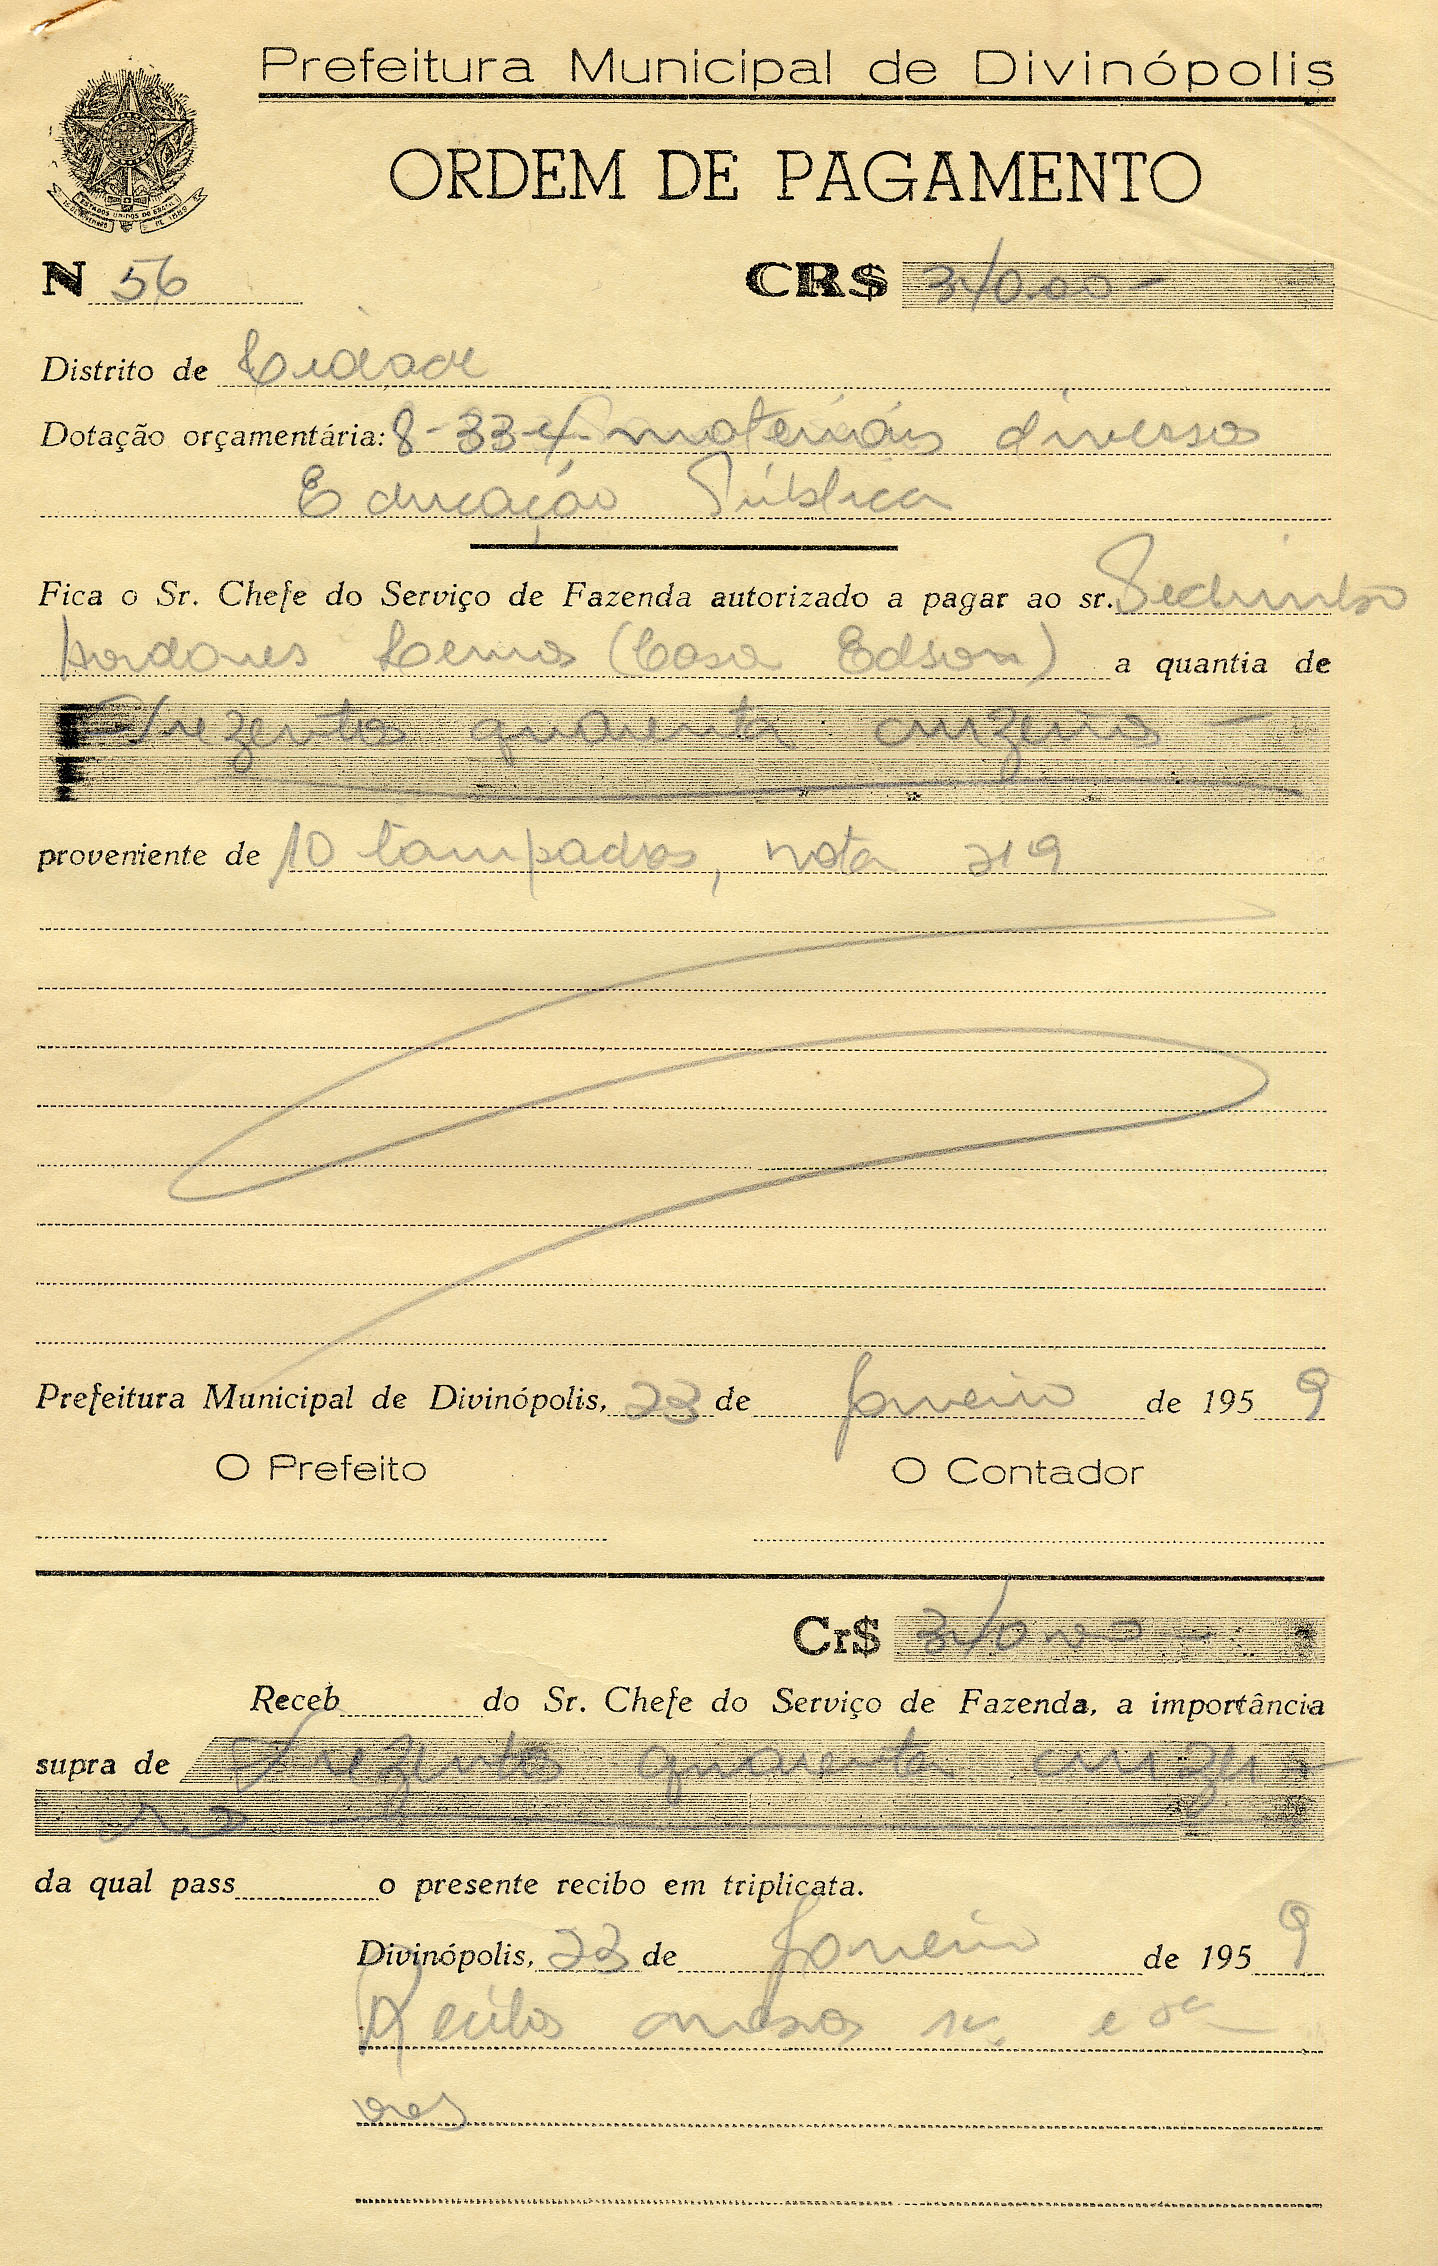 Prefeitura Municipal de Divinópolis
ORDEM DE PAGAMENTO
ESTADOS UNIDOS DO BRASIL
N 56 CR$ 340.00 -
Distrito de Cidade
Dotação orçamentária: 8-33-4. materiais diversos
Educação Pública
Fica o Sr. Chefe do Serviço de Fazenda autorizado a pagar ao sr.
Lemos (Casa Edson) a quantia de
Trezentos quarenta cruzeiros -
proveniente de 10 nota 219
Prefeitura Municipal de Divinópolis, 23 de janeiro de 195 9
O Prefeito O Contador
Cr$ 340.00 -
Receb do Sr. Chefe do Serviço de Fazenda, a importância
supra de Trezentos quarenta cruzei-
ros
da qual pass o presente recibo em triplicata.
Divinópolis, 23 de janeiro de 195 9
Recibo 1a. e 2a
vias